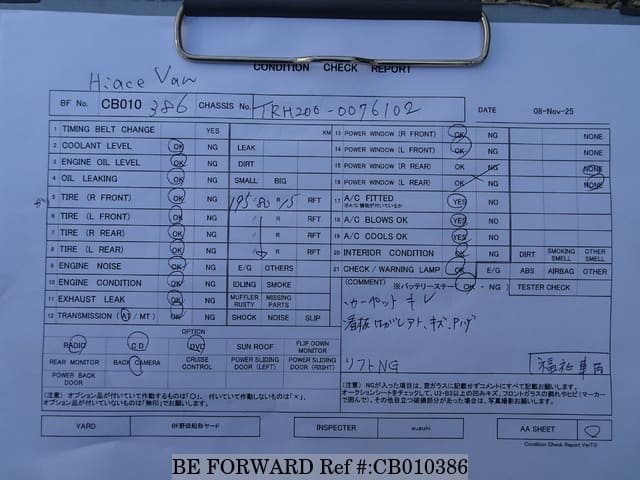 CONDITION CHECK REPORT
Hiace Van
BF No. CB010 386 CHASSIS No. TRH200-0076102 DATE 08-Nov-25
1 TIMING BELT CHANGE YES KM 13 POWER WINDOW (R FRONT) OK NG NONE
2 COOLANT LEVEL OK NG LEAK 14 POWER WINDOW (L FRONT) OK NG NONE
3 ENGINE OIL LEVEL OK NG DIRT 15 POWER WINDOW (R REAR) OK NG NONE
4 OIL LEAKING OK NG SMALL BIG 16 POWER WINDOW (L REAR) OK NG NONE
5 TIRE (R FRONT) OK NG 195/80 R 15 RFT 17 A/C FITTED YES NO
※A/C機能が付いているか
6 TIRE (L FRONT) OK NG / R RFT 18 A/C BLOWS OK YES NO
7 TIRE (R REAR) OK NG / R RFT 19 A/C COOLS OK YES NO
8 TIRE (L REAR) OK NG / R RFT 20 INTERIOR CONDITION OK NG DIRT SMOKING SMELL OTHER SMELL
9 ENGINE NOISE OK NG E/G OTHERS 21 CHECK / WARNING LAMP OK E/G ABS AIRBAG OTHER
10 ENGINE CONDITION OK NG IDLING SMOKE (COMMENT) ※バッテリーステー (OK・NG) TESTER CHECK
11 EXHAUST LEAK OK NG MUFFLER RUSTY MISSING PARTS
・カーペットキレ
12 TRANSMISSION (AT / MT) OK NG SHOCK NOISE SLIP
OPTION
RADIO CD DVD SUN ROOF FLIP DOWN MONITOR
REAR MONITOR BACK CAMERA CRUISE CONTROL POWER SLIDING DOOR (LEFT) POWER SLIDING DOOR (RIGHT)
リフトNG 福祉車両
POWER BACK DOOR
(注意) オプション品が付いていて作動するものは「○」、付いていて作動しないものは「×」、
オプション品が付いていないものは「無印」でお願いします。
(注意) NGが入った項目は、窓ガラスに記載せずコメントにすべて記載お願いします。
YARD BF野田船形ヤード INSPECTER suzuki AA SHEET
Condition Check Report Ver7.0
BE FORWARD Ref #:CB010386